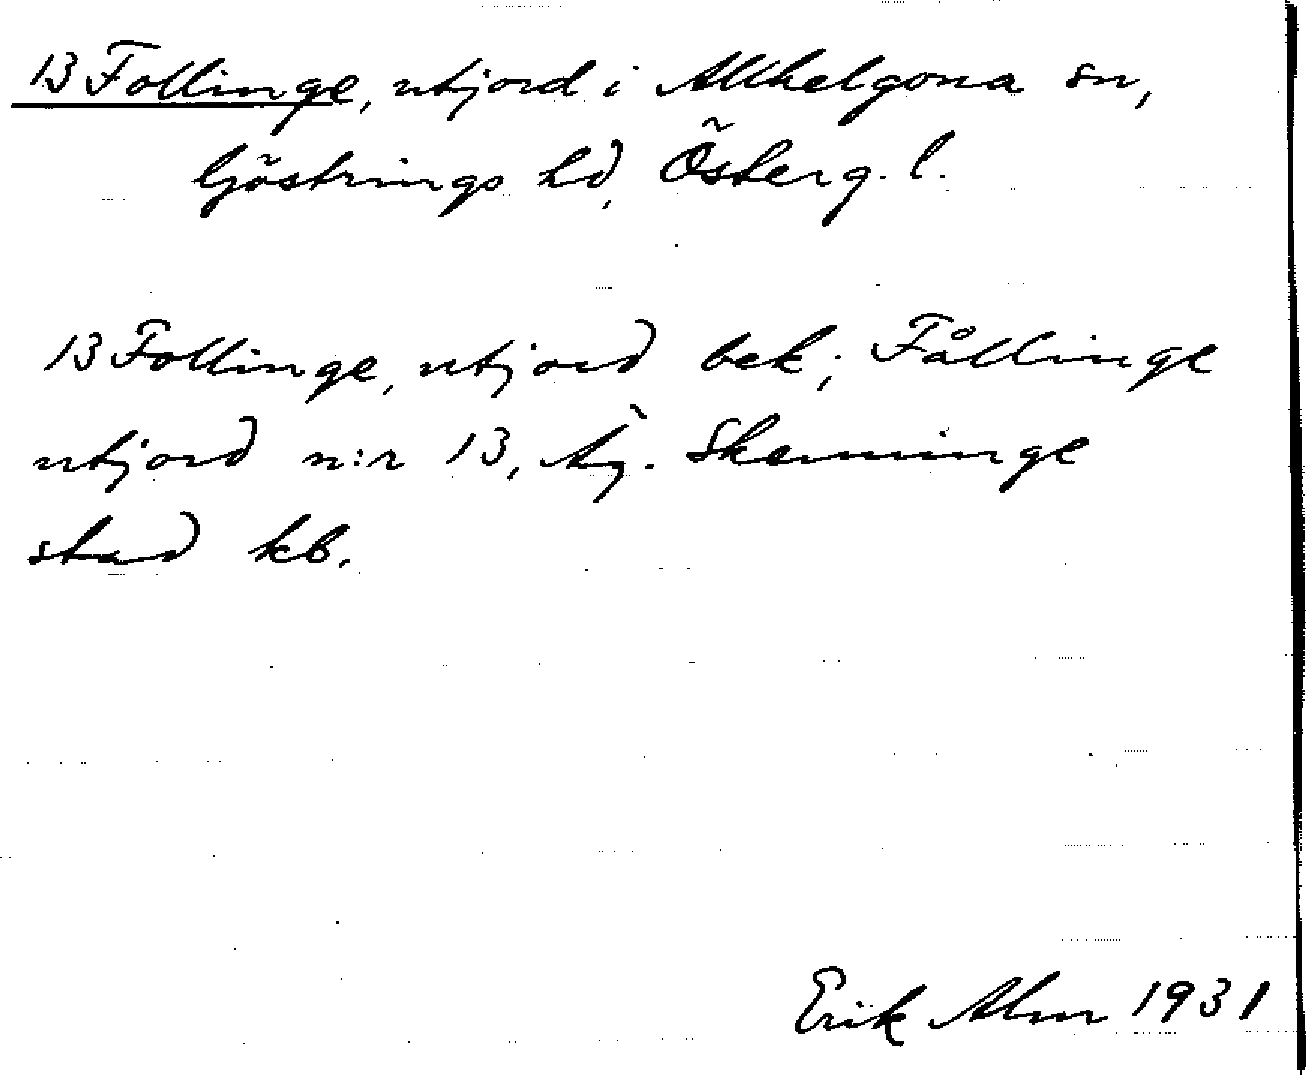 13 Follinge, utjord i Allhelgona sn,
Göstrings hd, Österg. l.
13 Follinge, utjord bek; Fållinge
utjord n:r 13, hj. Skenninge
stad kb.
Erik Alm 1931